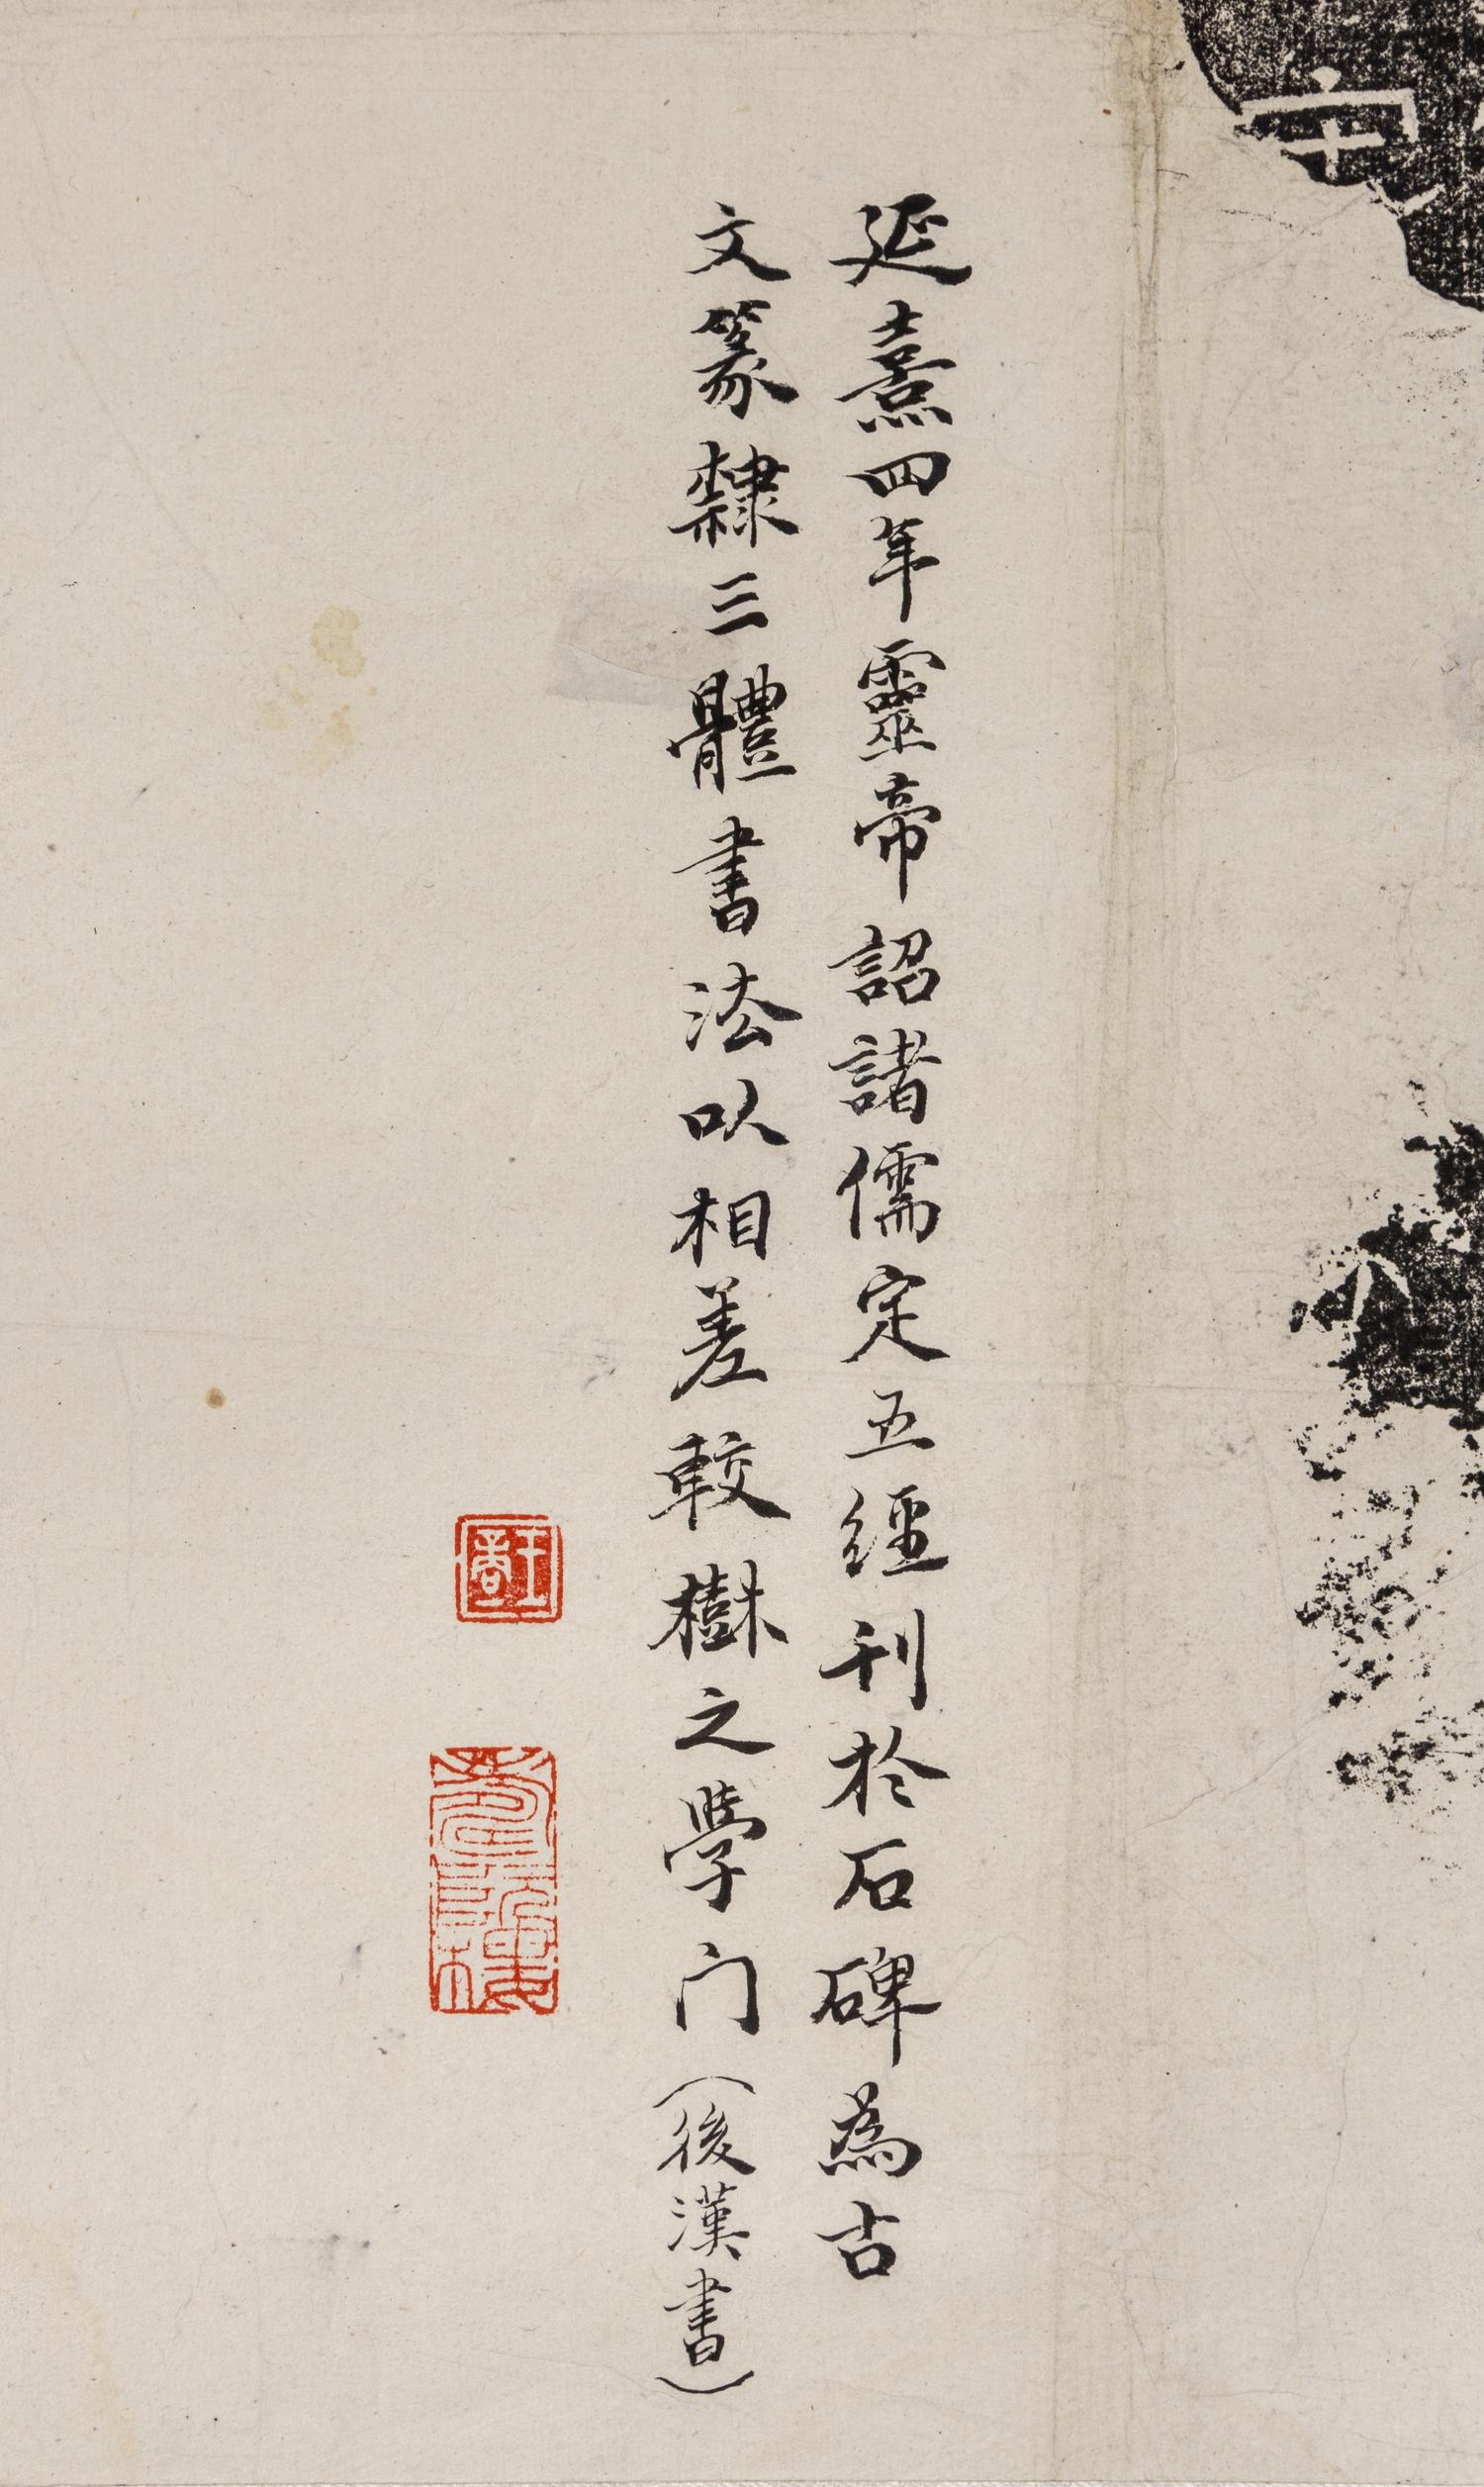 延熹四年靈帝詔諸儒定五經刊於石碑為古
文篆隸三體書法以相差較樹之學门(後漢書)